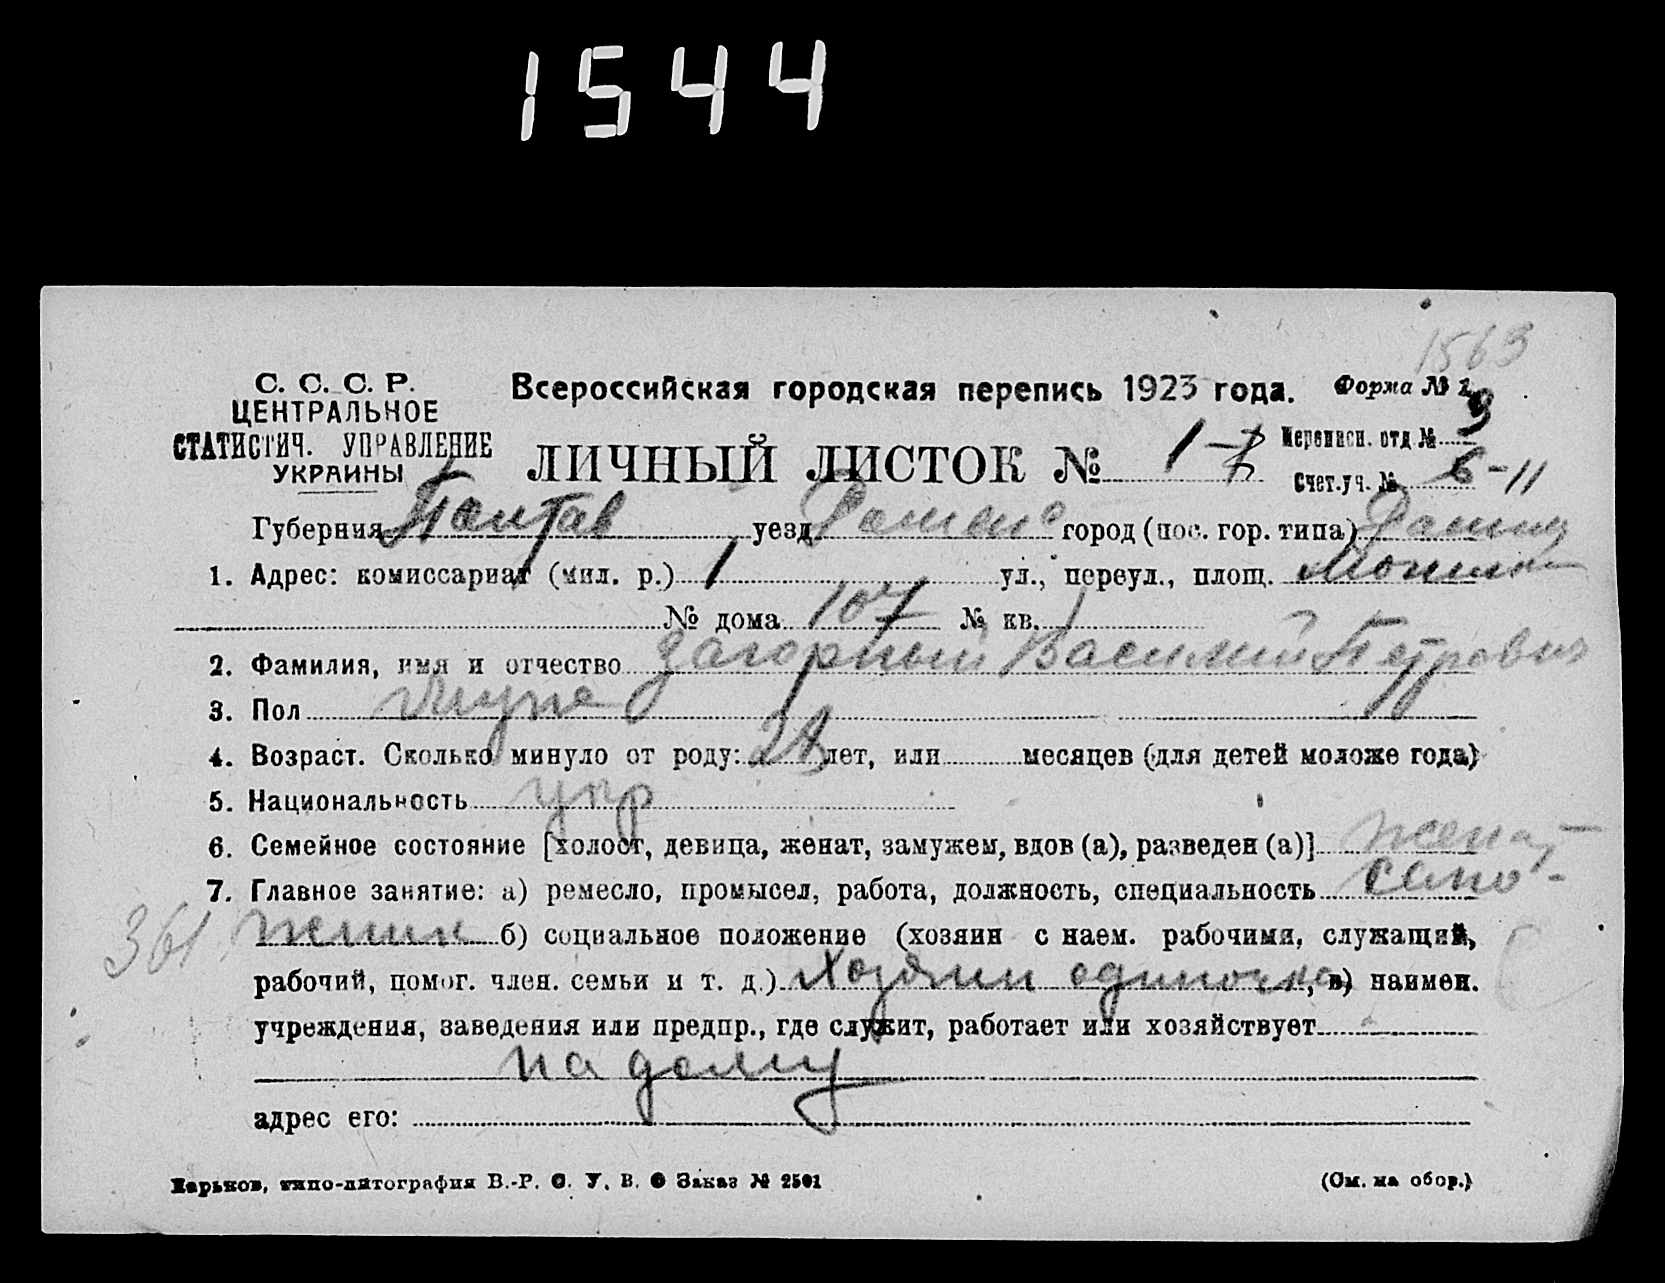 1544
1563
С. С. С. Р.
ЦЕНТРАЛЬНОЕ
СТАТИСТИЧ. УПРАВЛЕНИЕ
УКРАИНЫ
Всероссийская городская перепись 1923 года. Форма № 2
ЛИЧНЫЙ ЛИСТОК № 1-
Переписн. отд. № 3
Счет.уч. № 6-11
Губерния Полтав уезд Роменс город (пос. гор. типа) Ромны
1. Адрес: комиссариат (мил. р.) 1 ул., переул., площ.
№ дома 107 № кв.
2. Фамилия, имя и отчество Загорный Василий Петрович
3. Пол Муже
4. Возраст. Сколько минуло от роду: 28 лет, или месяцев (для детей моложе года)
5. Национальность укр
6. Семейное состояние [холост, девица, женат, замужем, вдов (а), разведен (а)] женат
7. Главное занятие: а) ремесло, промысел, работа, должность, специальность сапо-
361 жник б) социальное положение (хозяин с наем. рабочими, служащий,
рабочий, помог. член. семьи и т. д.) Хозяин одиночка, в) наимен.
учреждения, заведения или предпр., где служит, работает или хозяйствует
на дому
адрес его:
Харьков, типо-литография В.-Р. С. У. В. О Заказ № 2501 (См. на обор.)